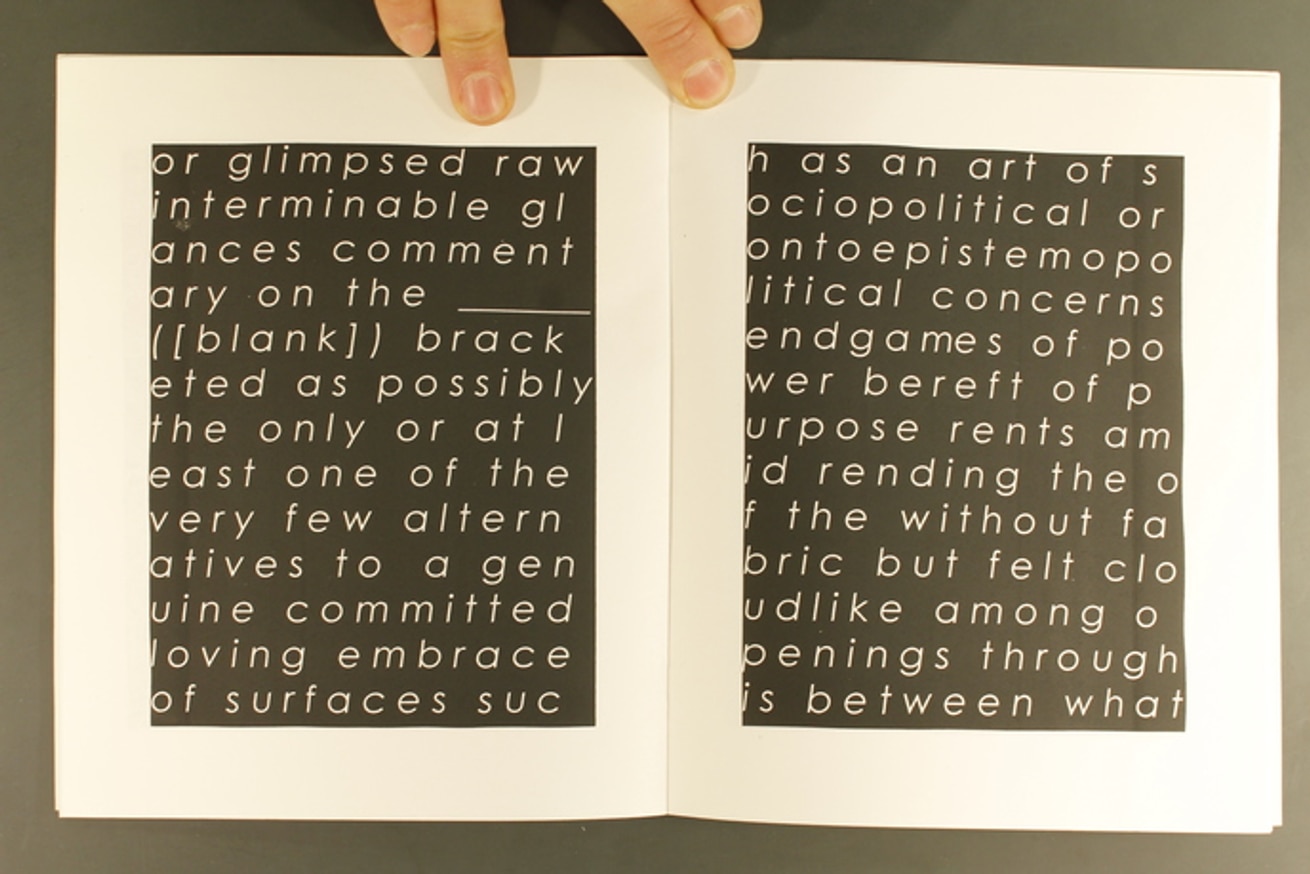 or glimpsed raw
interminable gl
ances comment
ary on the ______
([blank]) brack
eted as possibly
the only or at l
east one of the
very few altern
atives to a gen
uine committed
loving embrace
of surfaces suc
h as an art of s
ociopolitical or
ontoepistemopo
litical concerns
endgames of po
wer bereft of p
urpose rents am
id rending the o
f the without fa
bric but felt clo
udlike among o
penings through
is between what